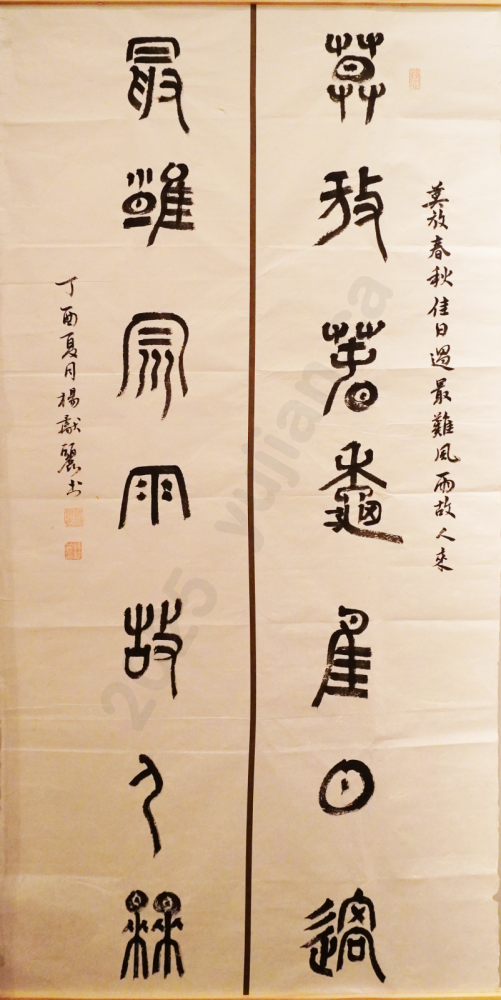 莫放春秋佳日過最難風雨故人來
莫放春秋佳日過
最難風雨故人來
丁酉夏月楊獻麗书
2025 yujianca